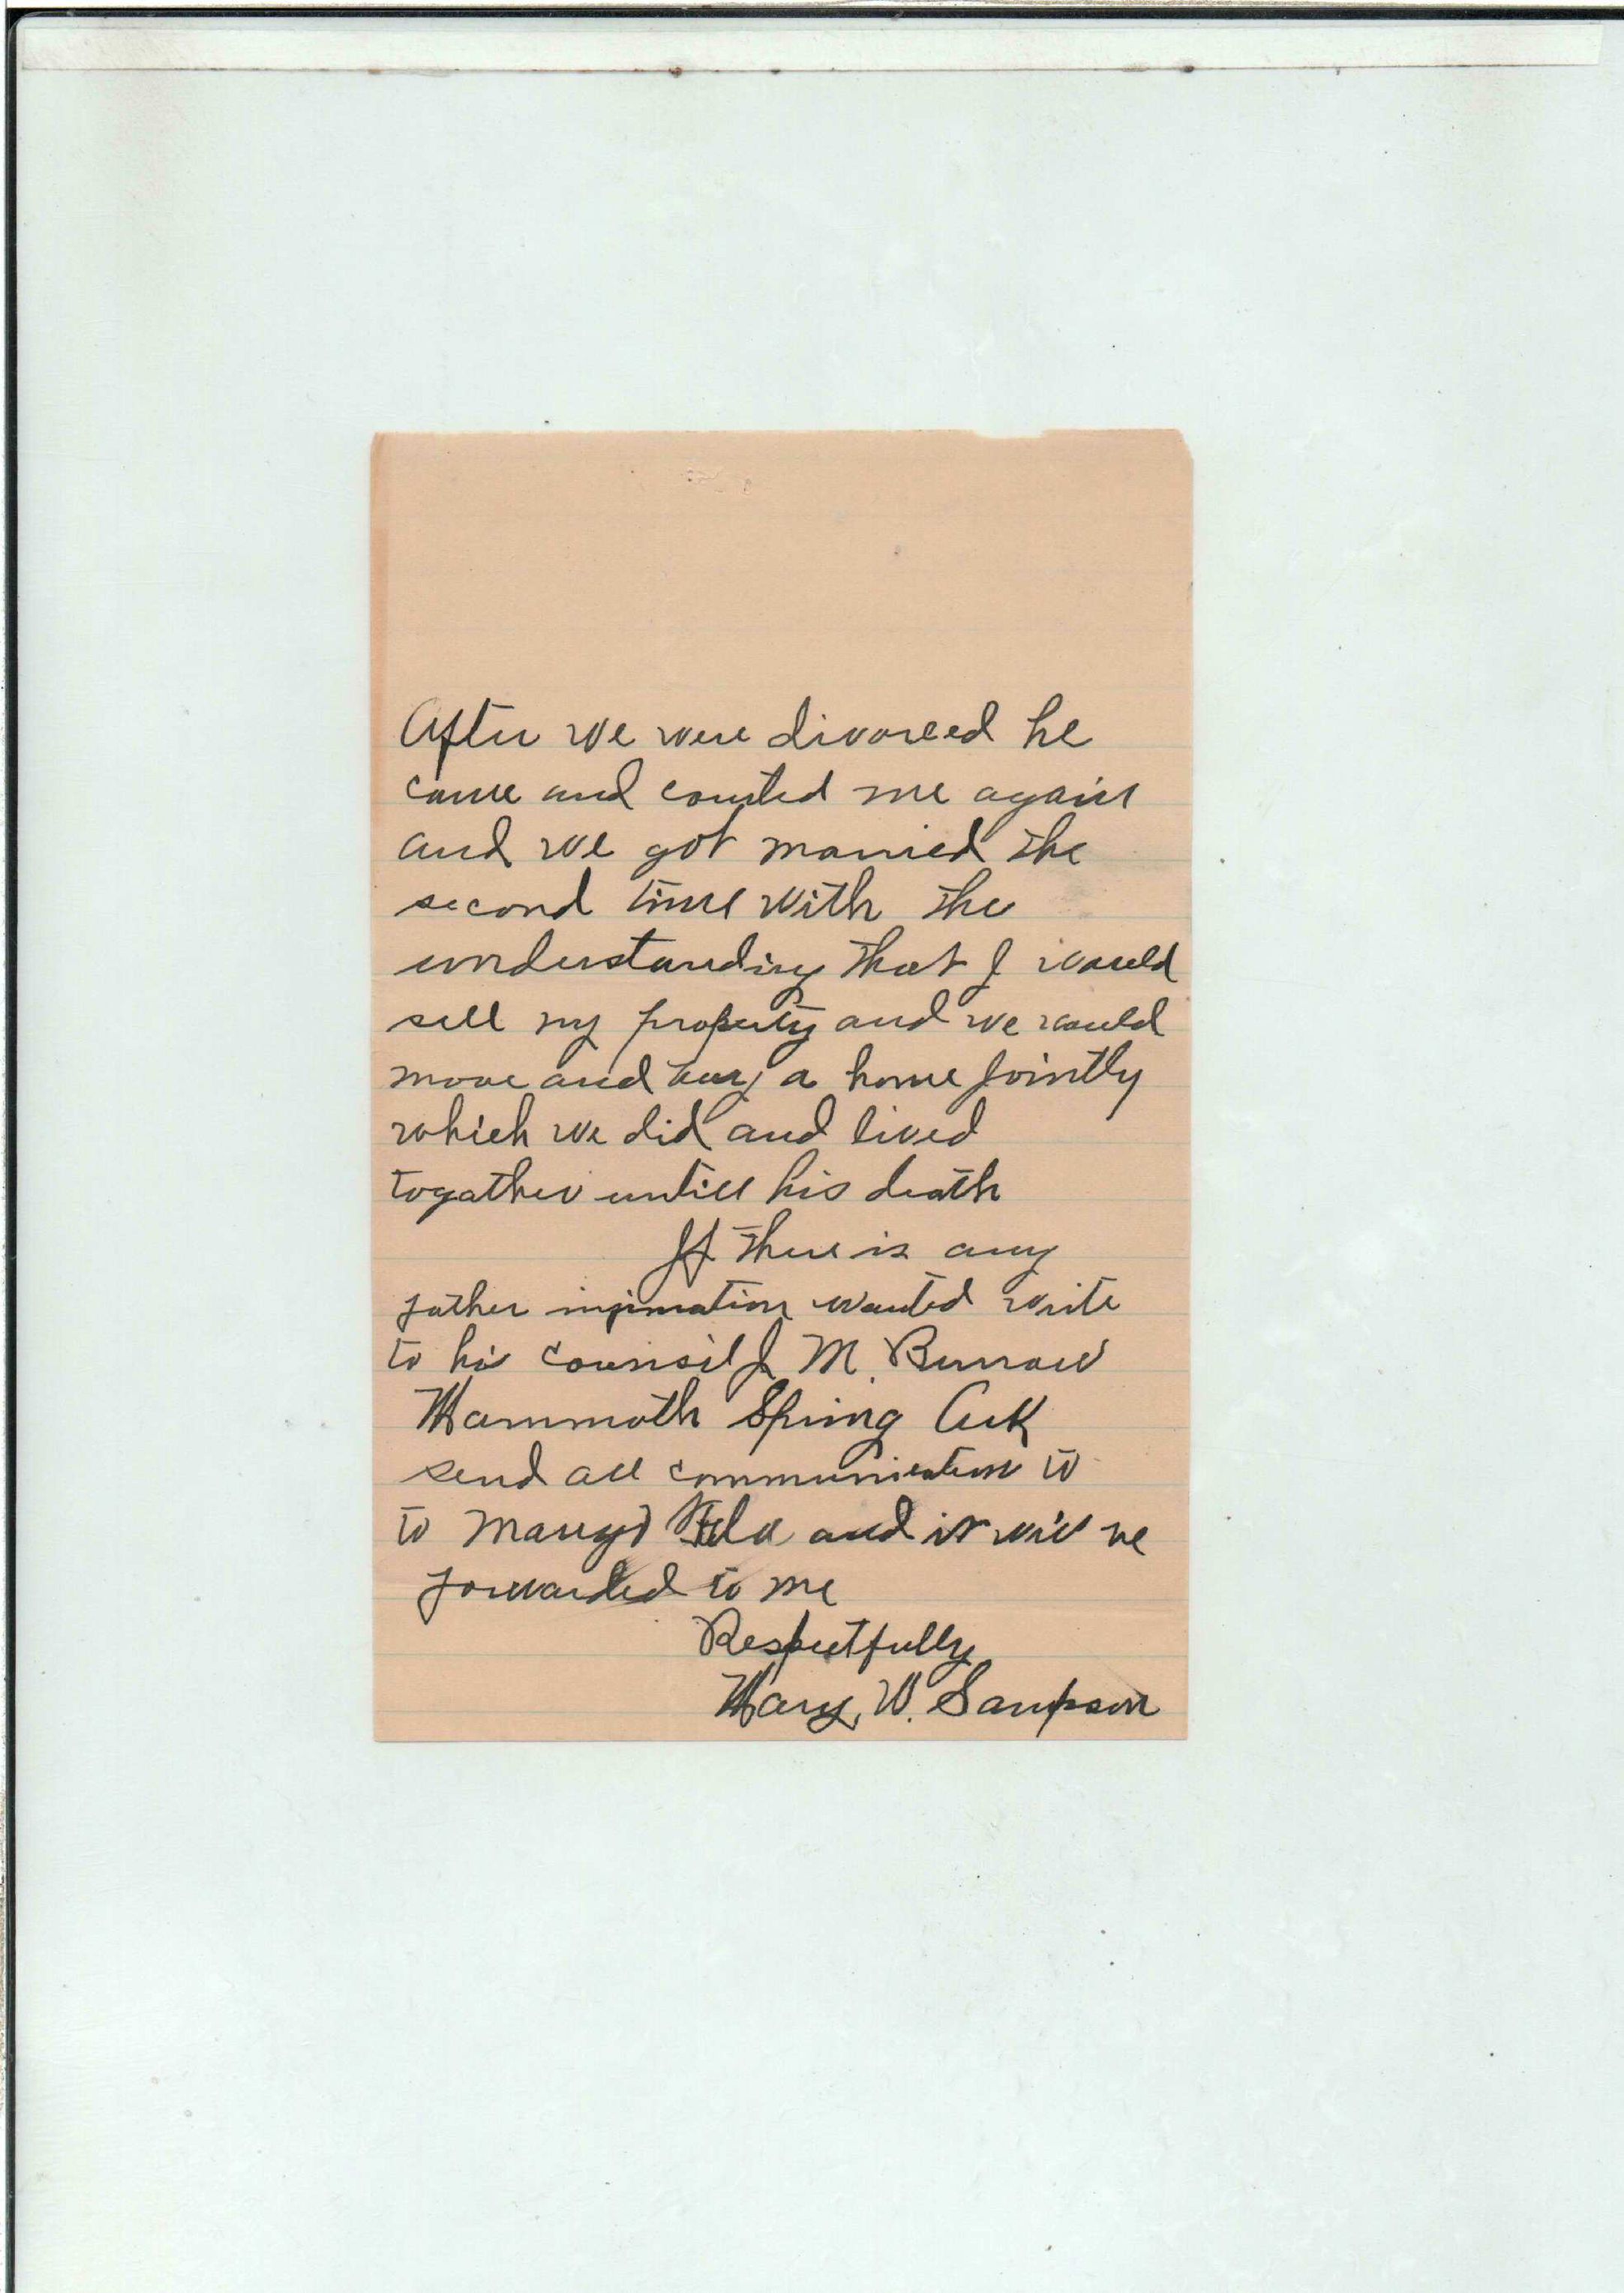 After we were divorced he
came and courted me again
and we got married the
second time with the
understanding that I would
sell my property and we would
move and buy a home jointly
which we did and lived
together untill his death
If there is any
father information wanted write
to his counsil J M. Burrow
Mammoth Spring Ark
send all communication to
to and it will be
forwarded to me
Respectfully
Mary, W. Sampson